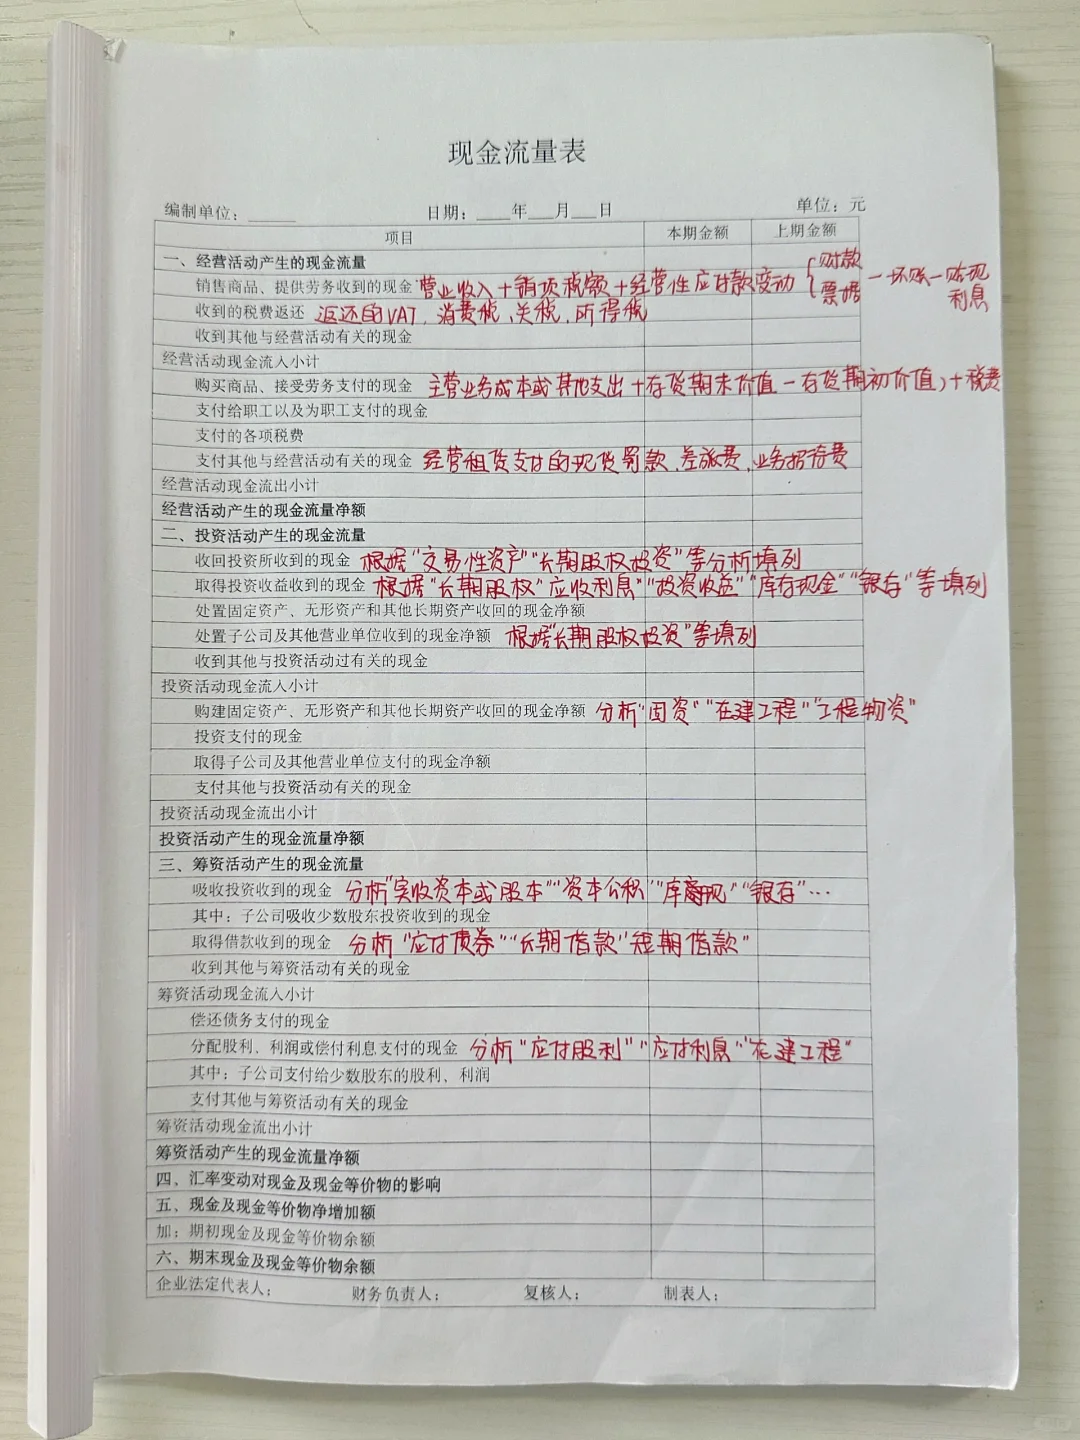 现金流量表
编制单位：_____ 日期：____年___月___日 单位：元
项目 本期金额 上期金额
一、经营活动产生的现金流量
销售商品、提供劳务收到的现金 营业收入+销项税额+经营性应付款变动{财款 票据 一坏账一贴现利息
收到的税费返还 返还的VAT、消费税、关税、所得税
收到其他与经营活动有关的现金
经营活动现金流入小计
购买商品、接受劳务支付的现金 主营业务成本或其他支出+存货期末价值-存货期初价值)+税费
支付给职工以及为职工支付的现金
支付的各项税费
支付其他与经营活动有关的现金 经营租赁支付的现货罚款、差旅费、业务招待费
经营活动现金流出小计
经营活动产生的现金流量净额
二、投资活动产生的现金流量
收回投资所收到的现金 根据"交易性资产""长期股权投资"等分析填列
取得投资收益收到的现金 根据"长期股权"应收利息""投资收益""库存现金""银存"等填列
处置固定资产、无形资产和其他长期资产收回的现金净额
处置子公司及其他营业单位收到的现金净额 根据"长期股权投资"等填列
收到其他与投资活动过有关的现金
投资活动现金流入小计
购建固定资产、无形资产和其他长期资产收回的现金净额 分析"固资""在建工程""工程物资"
投资支付的现金
取得子公司及其他营业单位支付的现金净额
支付其他与投资活动有关的现金
投资活动现金流出小计
投资活动产生的现金流量净额
三、筹资活动产生的现金流量
吸收投资收到的现金 分析"实收资本或股本""资本公积""库现""银存"…
其中：子公司吸收少数股东投资收到的现金
取得借款收到的现金 分析"应付债券""长期借款"短期借款"
收到其他与筹资活动有关的现金
筹资活动现金流入小计
偿还债务支付的现金
分配股利、利润或偿付利息支付的现金 分析"应付股利""应付利息""在建工程"
其中：子公司支付给少数股东的股利、利润
支付其他与筹资活动有关的现金
筹资活动现金流出小计
筹资活动产生的现金流量净额
四、汇率变动对现金及现金等价物的影响
五、现金及现金等价物净增加额
加：期初现金及现金等价物余额
六、期末现金及现金等价物余额
企业法定代表人： 财务负责人： 复核人： 制表人：